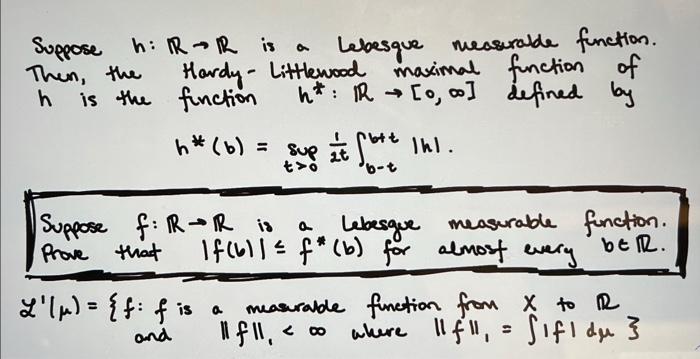 Suppose h: ℝ → ℝ is a Lebesgue measurable function.
Then, the Hardy-Littlewood maximal function of
h is the function h*: ℝ → [0, ∞] defined by
h*(b) = sup_{t>0} 1/2t ∫_{b-t}^{b+t} |h|.
Suppose f: ℝ → ℝ is a Lebesgue measurable function.
Prove that |f(b)| ≤ f*(b) for almost every b ∈ ℝ.
ℒ'(μ) = {f: f is a measurable function from X to ℝ
and ‖f‖₁ < ∞ where ‖f‖₁ = ∫|f| dμ }